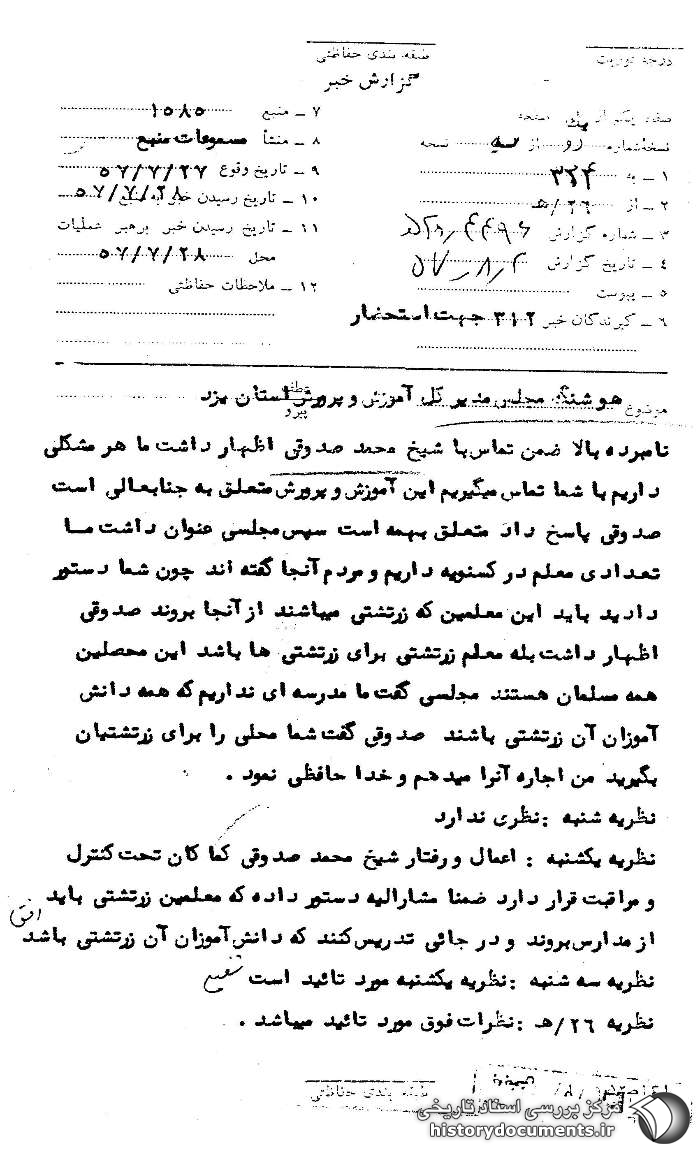 درجه فوریت
طبقه بندی حفاظتی
گزارش خبر
صفحه یکم از یک صفحه
نسخه شماره دو از سه نسخه
۱ ـ به ۳۲۴
۲ ـ از ۲۶/هـ
۳ ـ شماره گزارش
۴ ـ تاریخ گزارش ۵۷ـ۸ـ۲
۵ ـ پیوست
۶ ـ گیرندگان خبر ۳۱۲ جهت استحضار
۷ ـ منبع ۱۵۸۵
۸ ـ منشأ مسموعات منبع
۹ ـ تاریخ وقوع ۵۷/۷/۲۷
۱۰ ـ تاریخ رسیدن خبر به منبع ۵۷/۷/۲۸
۱۱ ـ تاریخ رسیدن خبر برهبر عملیات
محل ۵۷/۷/۲۸
۱۲ ـ ملاحظات حفاظتی
موضوع هوشنگ مجلسی مدیر کل آموزش و پرورش استان یزد
پیرو
نامبرده بالا ضمن تماس با شیخ محمد صدوقی اظهار داشت ما هر مشکلی
داریم با شما تماس میگیریم این آموزش و پرورش متعلق به جنابعالی است
صدوقی پاسخ داد متعلق بهمه است سپس مجلسی عنوان داشت ما
تعدادی معلم در کسنویه داریم و مردم آنجا گفته اند چون شما دستور
دادید باید این معلمین که زرتشتی میباشند از آنجا بروند صدوقی
اظهار داشت بله معلم زرتشتی برای زرتشتی ها باشد این محصلین
همه مسلمان هستند مجلسی گفت ما مدرسه ای نداریم که همه دانش
آموزان آن زرتشتی باشند صدوقی گفت شما محلی را برای زرتشتیان
بگیرید من اجاره آنرا میدهم و خدا حافظی نمود .
نظریه شنبه : نظری ندارد
نظریه یکشنبه : اعمال و رفتار شیخ محمد صدوقی کما کان تحت کنترل
و مراقبت قرار دارد ضمنا مشارالیه دستور داده که معلمین زرتشتی باید
از مدارس بروند و در جائی تدریس کنند که دانش آموزان آن زرتشتی باشد
افق
نظریه سه شنبه : نظریه یکشنبه مورد تائید است شفیع
نظریه ۲۶/هـ : نظرات فوق مورد تائید میباشد .
طبقه بندی حفاظتی
مرکز بررسی اسناد تاریخی
historydocuments.ir